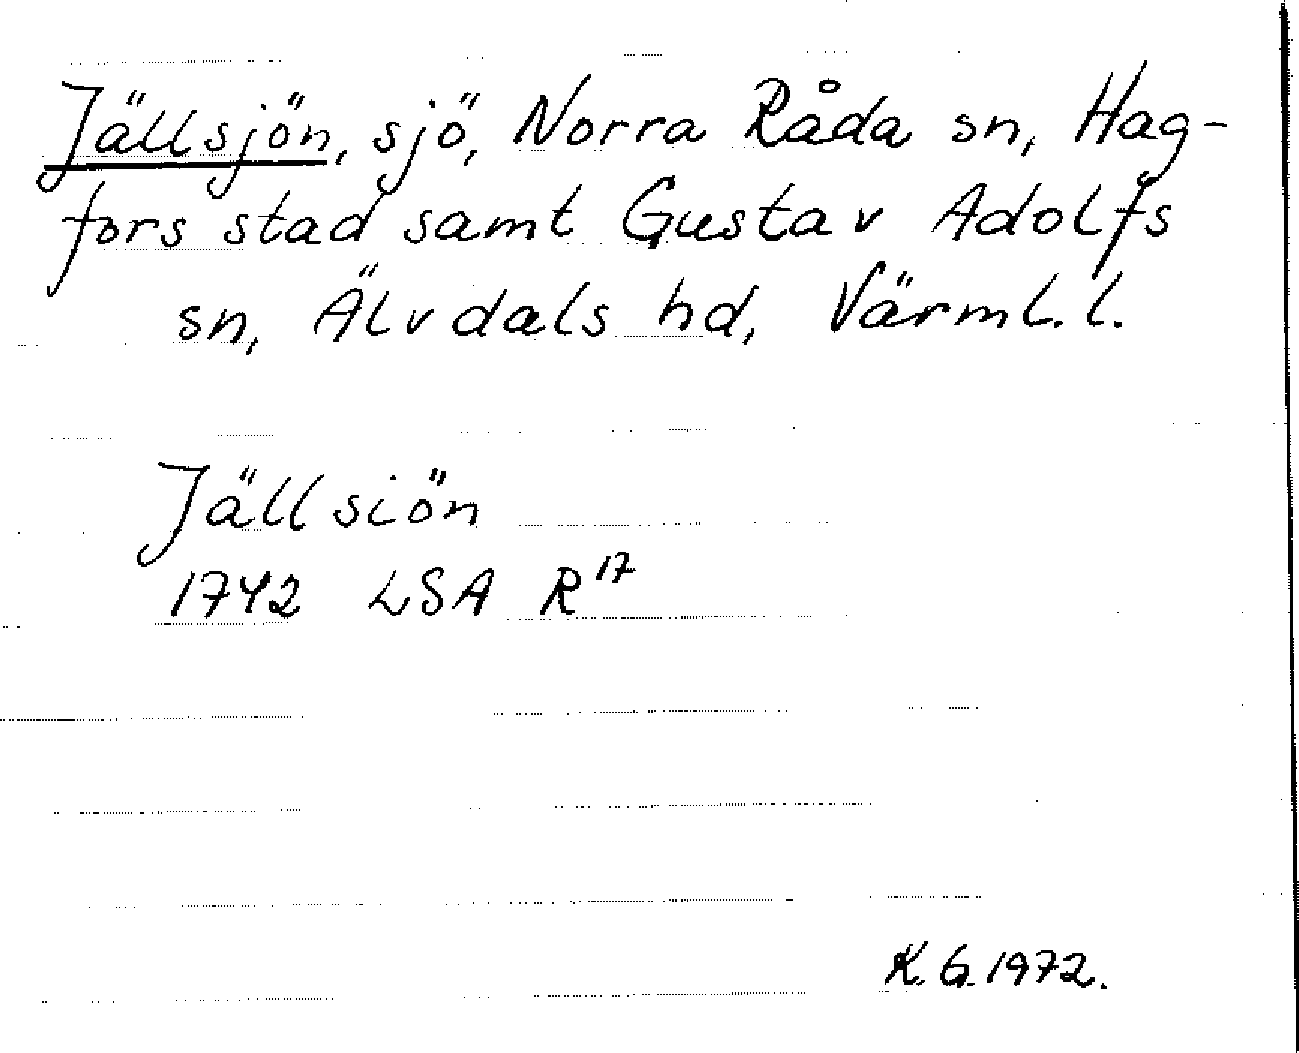 Jällsjön, sjö, Norra Råda sn, Hag-
fors stad samt Gustav Adolfs
sn, Älvdals hd, Värml. l.
Jällsiön
1742 LSA R17
K. G. 1972.